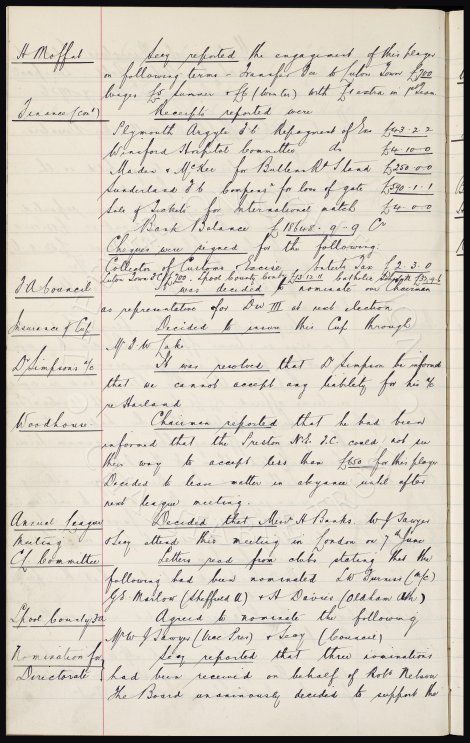 H Moffat
Secy reported the engagement of this player
on following terms - Transfer Fee to Luton Town £700
Wages £5 summer & £6 (Winter) with £1 extra in 1st Team.
Finance (con)
Receipts reported were
Plymouth Argyle F.C. Repayment of Exs £43-2-2
Winsford Hospital Committee do £4-10-0
Maden & McKee for Bullens Rd Stand £250-0-0
Sunderland F.C. Compensn for loss of gate £590-1-1
Sale of Tickets for International match £4-0-0
Bank Balance £18648-9-9 Cr
Cheques were signed for the following:
Collector of Customs & Excise, Enterts Tax £2-3-0
Luton Town F.C. £700. Lpool County Comby Catholic
F A Council
It was decided to nominate our Chairman
as representative for Div III at next election.
Insurance of Cup
Decided to insure this Cup through
Mr J W Lake
Dr Simpsons a/c
It was resolved that Dr Simpson be informed
that we cannot accept any liability for his a/c
re Harland
Woodhouse
Chairman reported that he had been
informed that the Preston N.E. F.C. could not see
their way to accept less than £650 for this player
Decided to leave matter in abeyance until after
next league meeting.
Annual League
Meeting
Decided that Messrs H Banks. W J Sawyer
& Secy attend this meeting in London on 7th June
C.L. Committee
Letters read from clubs stating that the
following had been nominated L W Furniss (M/c)
G S Marlow (Sheffield U) & A Davies (Oldham Ath)
Lpool County F.A
Agreed to nominate the following
Mr W J Sawyer (Vice Pres) & Secy (Council)
Nomination for
Directorate
Secy reported that three nominations
had been received on behalf of Robt Nelson
The Board unanimously decided to support the